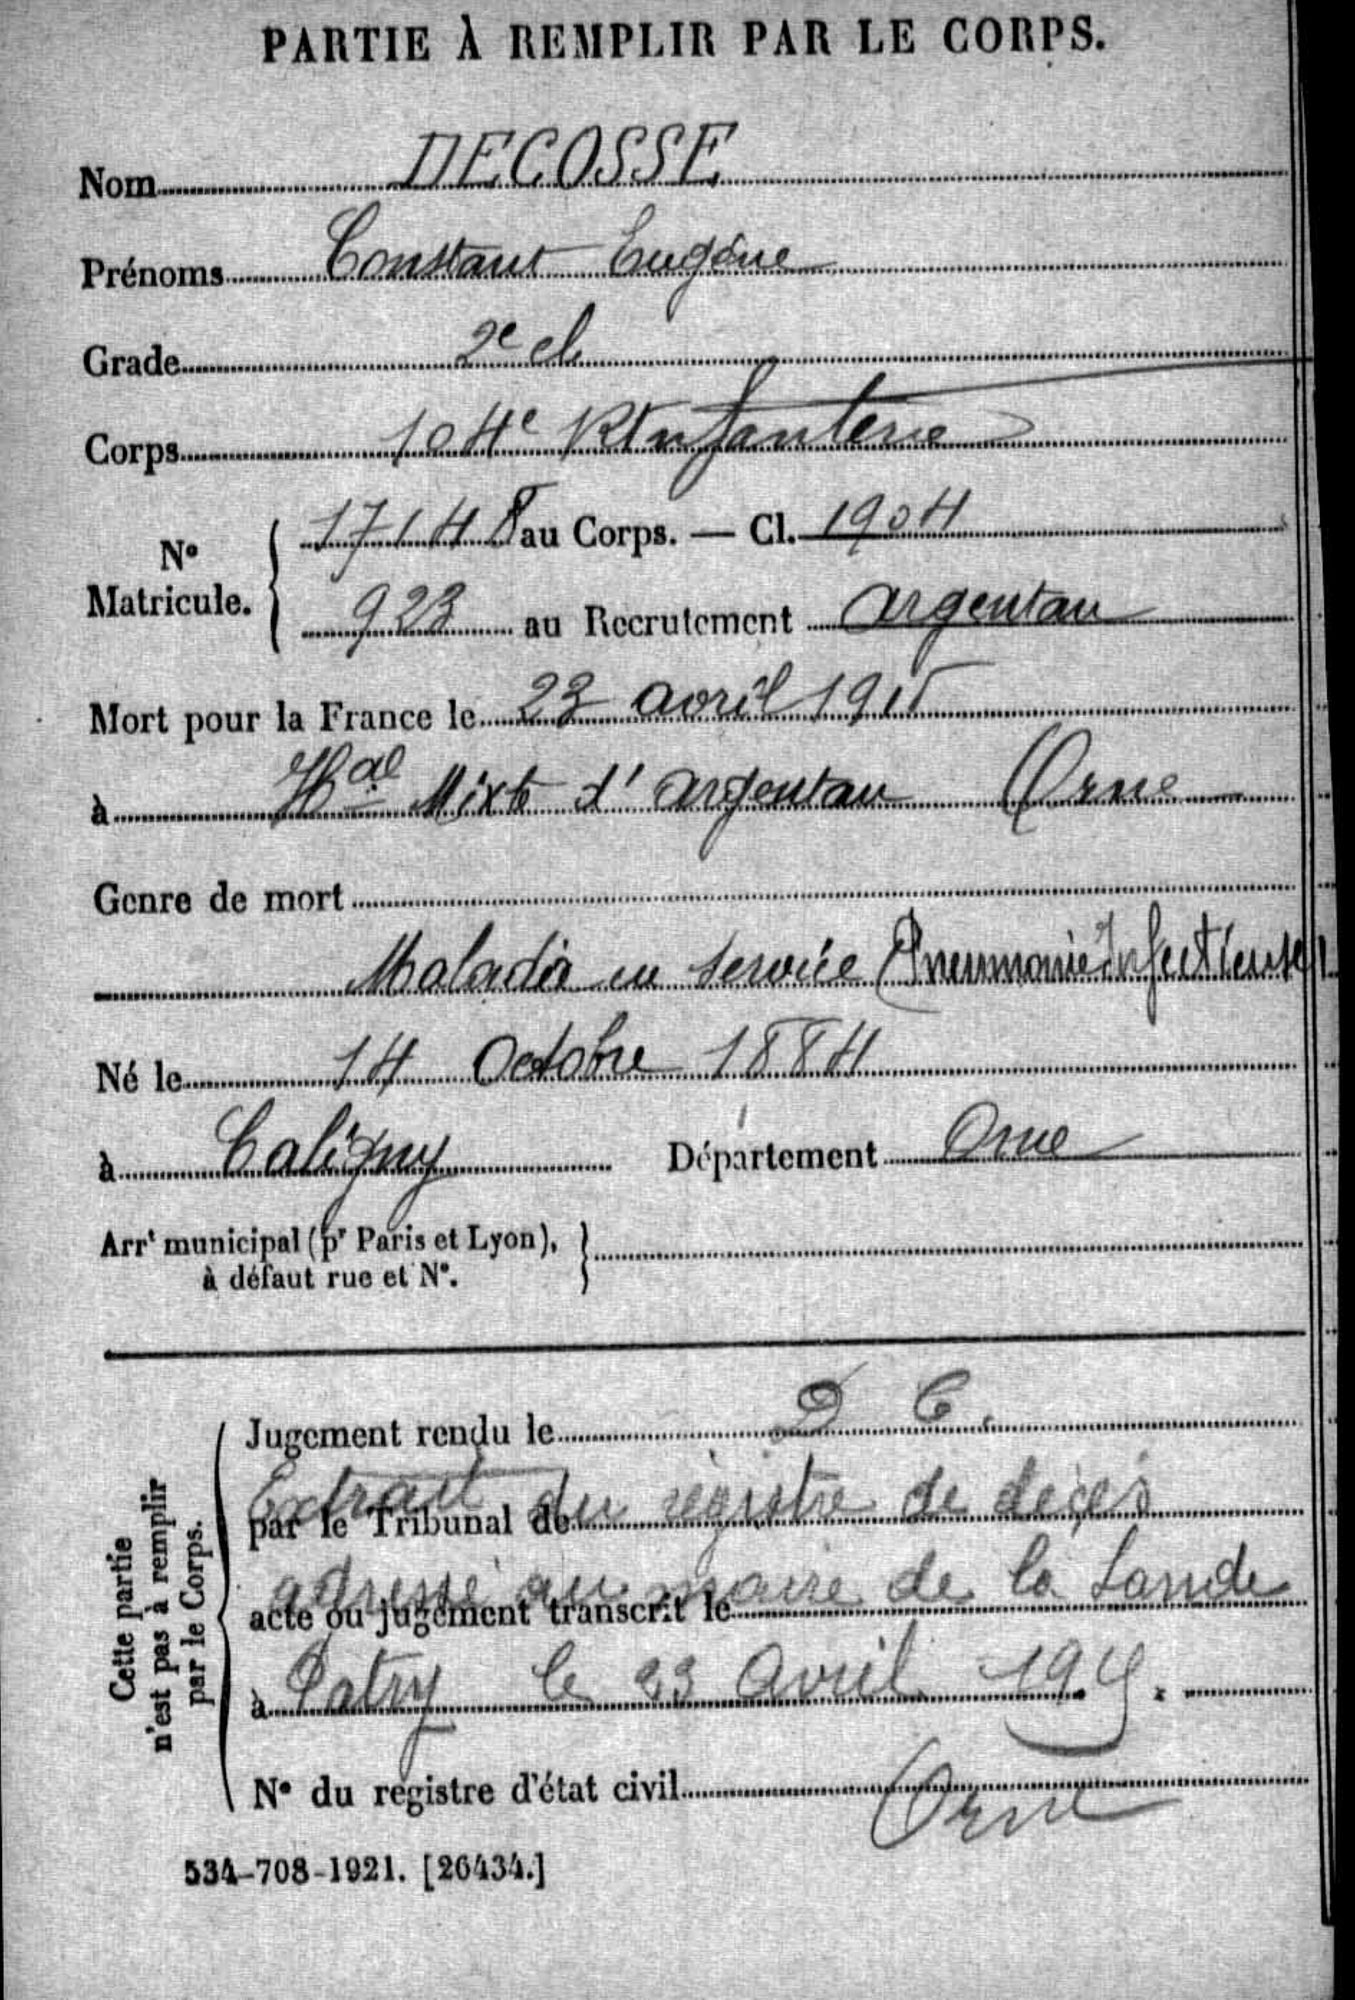 PARTIE À REMPLIR PAR LE CORPS.
Nom DECOSSE
Prénoms Constant Eugène
Grade 2e cl
Corps 104e Rt Infanterie
No Matricule. 17148 au Corps. — Cl. 1904
923 au Recrutement Argentan
Mort pour la France le 23 avril 1915
à Hal Mixte d'Argentan Orne
Genre de mort
Maladie en service Pneumonie Infectieuse
Né le 14 Octobre 1884
à Caligny Département Orne
Arrt municipal (pr Paris et Lyon), à défaut rue et No.
Cette partie n'est pas à remplir par le Corps.
Jugement rendu le D C.
Extrait du registre de décès
par le Tribunal de
adressé au maire de la Lande
acte ou jugement transcrit le
à Patry le 23 Avril
No du registre d'état civil Orne
534-708-1921. [26434.]